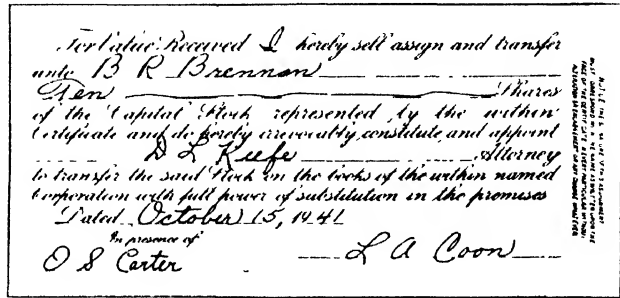 For Value Received I hereby sell assign and transfer
unto B R Brennan
Ten Shares
of the Capital Stock represented by the within
Certificate and do hereby irrevocably constitute and appoint
D L Keefe Attorney
to transfer the said Stock on the books of the within named
Corporation with full power of substitution in the premises
Dated October 15, 1941
In presence of
O S Carter
L A Coon